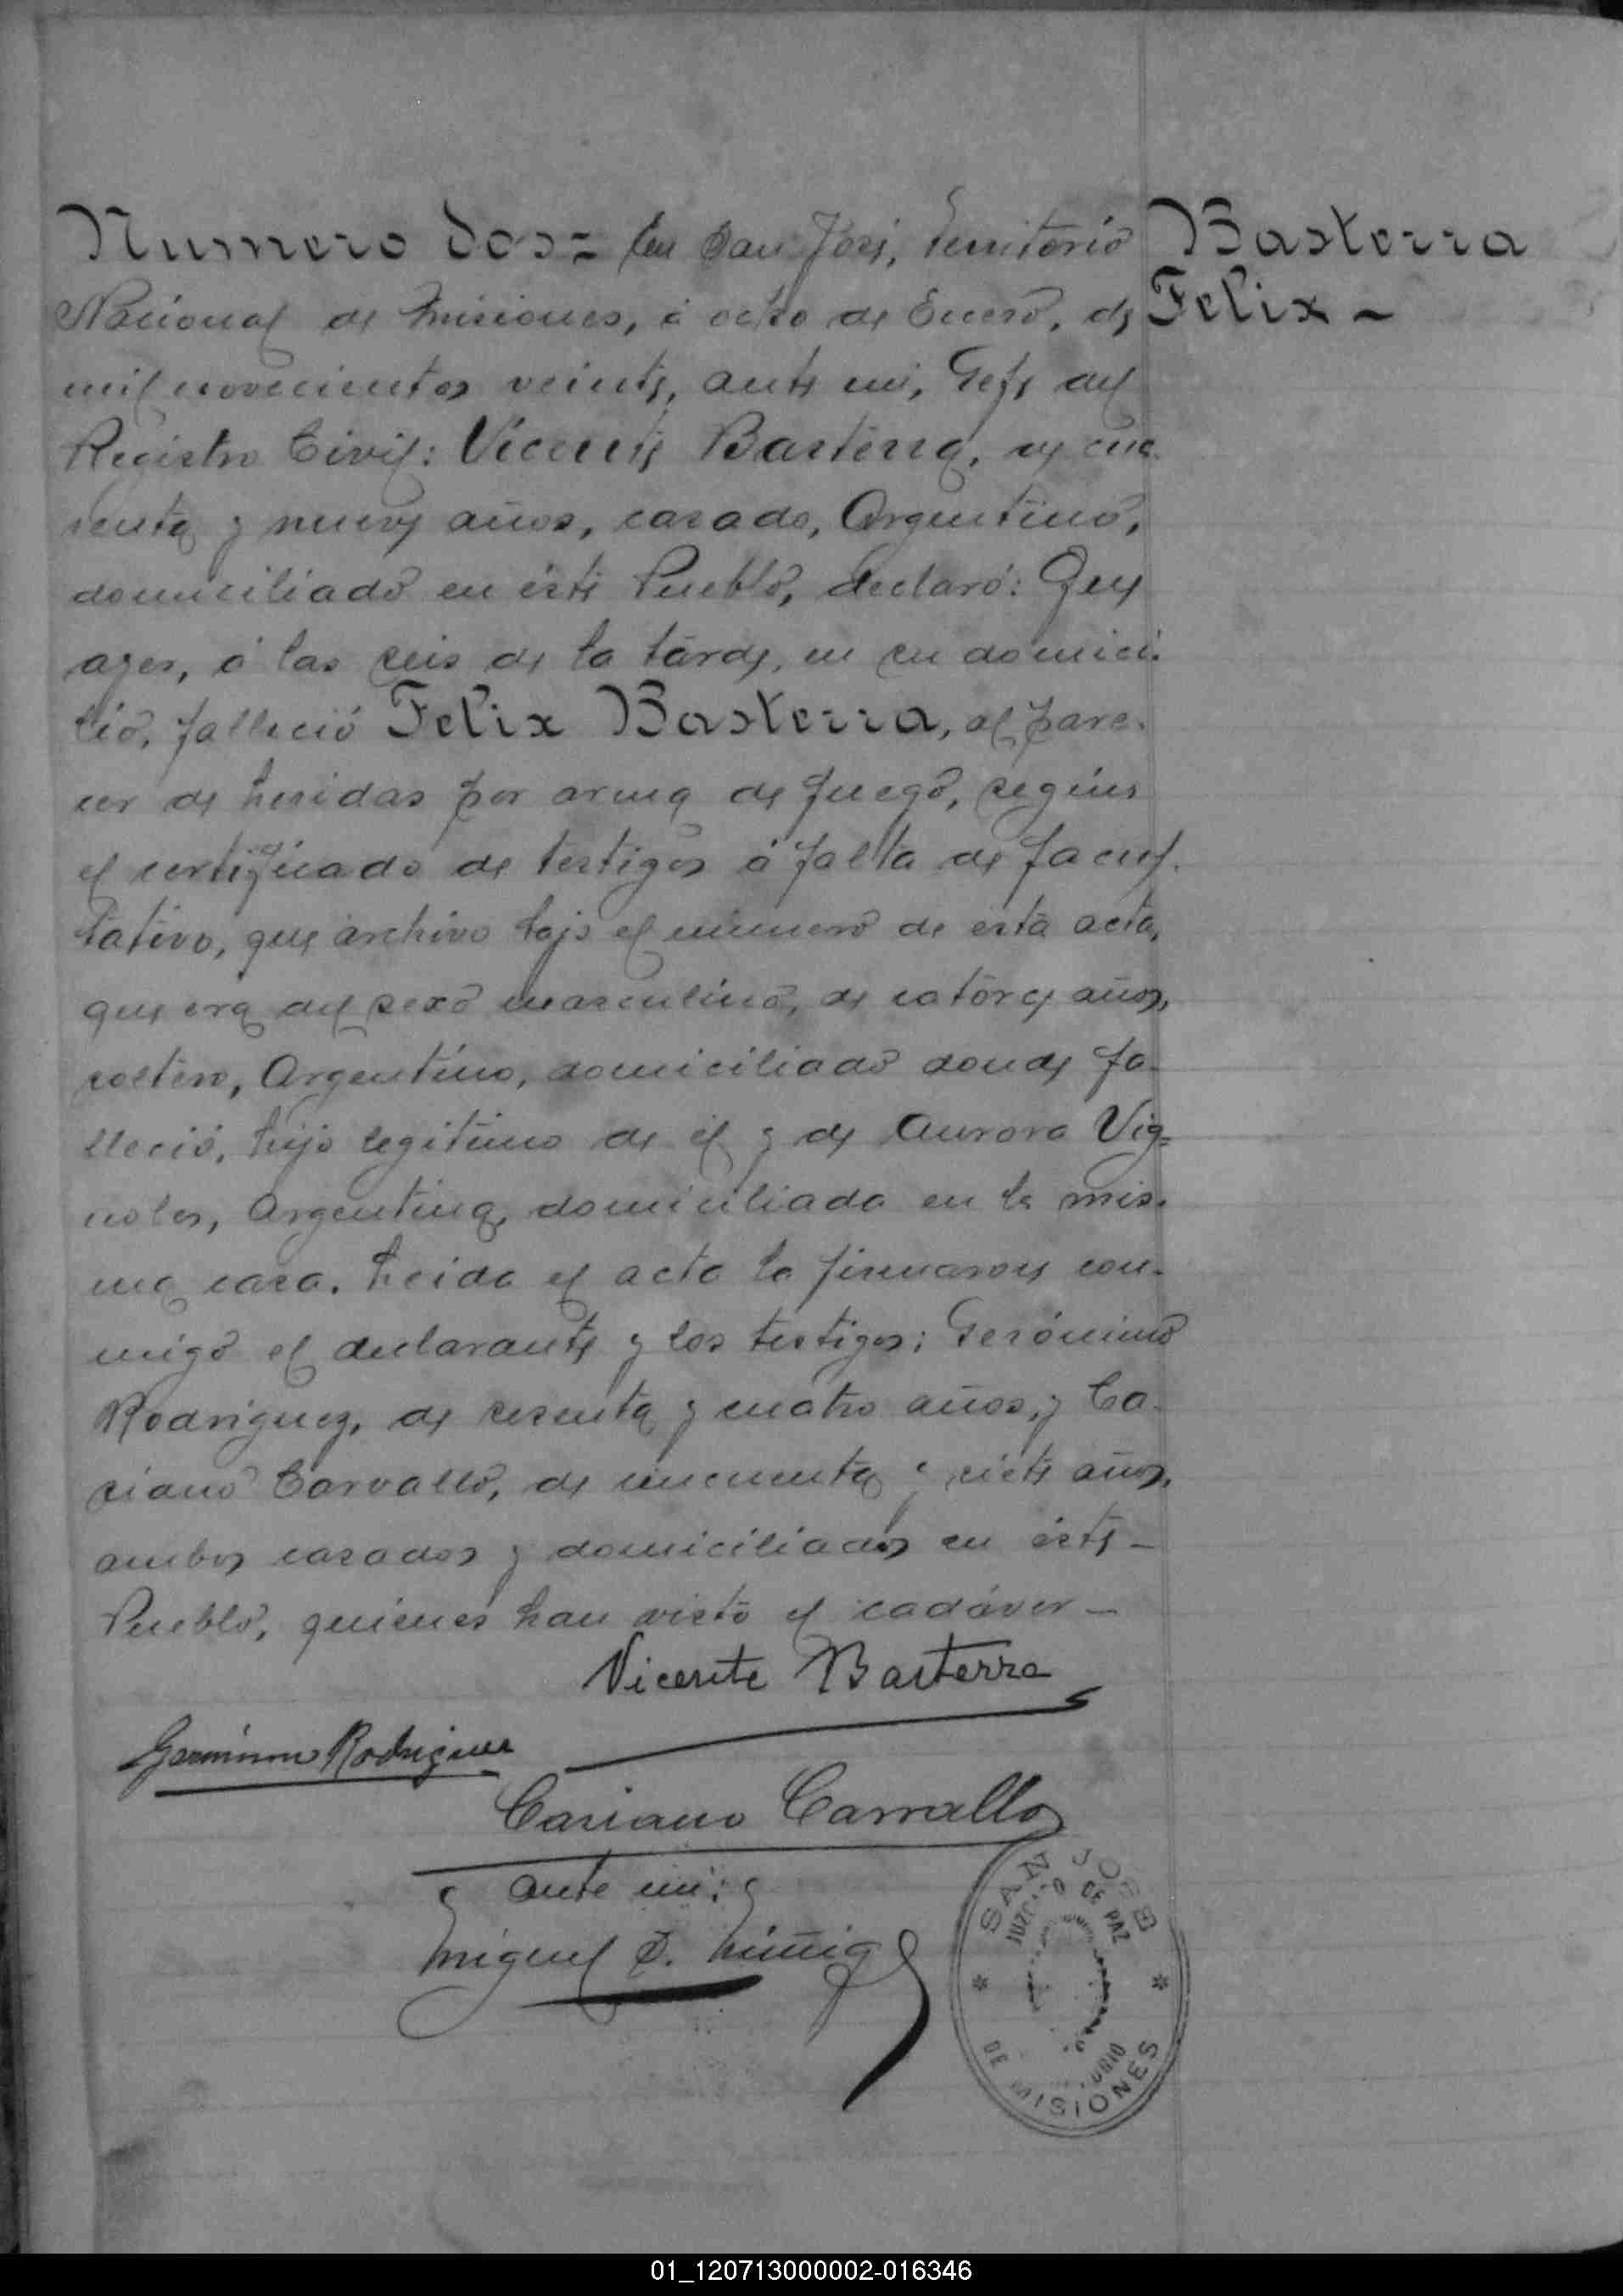 Numero dos = En San José, Territorio
Basterra
Nacional de Misiones, á ocho de Enero, de
Felix -
mil novecientos veinte, ante mi, Gefe del
Registro Civil: Vicente Basterra, de cua-
renta y nueve años, casado, Argentino,
domiciliado en éste Pueblo, declaró: Que
ayer, á las seis de la tarde, en su domici-
lio, falleció Felix Basterra, al pare-
cer de heridas por arma de fuego, según
el certificado de testigos á falta de facul-
tativo, que archivo bajo el número de esta acta,
que era del sexo masculino, de catorce años,
soltero, Argentino, domiciliado donde fa-
lleció, hijo legitimo de él y de Aurora Vig=
noles, Argentina, domiciliada en la mis-
ma casa. Leida el acta la firmaron con-
migo el declarante y los testigos: Gerónimo
Rodriguez, de sesenta y cuatro años, y Ca-
siano Carvallo, de cincuenta y siete años,
ambos casados y domiciliados en éste -
Pueblo, quienes han visto el cadáver -
Vicente Basterra
Geronimo Rodriguez
Casiano Carvallo
ante mi:
Miguel
SAN JOSE
JUZGADO DE PAZ
DE MISIONES
01_120713000002-016346